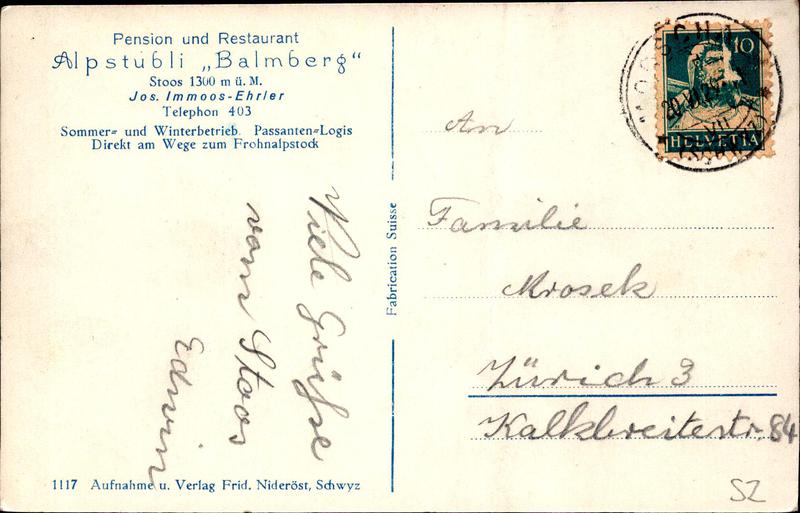 Pension und Restaurant
Alpstübli „Balmberg“
Stoos 1300 m ü. M.
Jos. Immoos-Ehrler
Telephon 403
Sommer= und Winterbetrieb. Passanten=Logis
Direkt am Wege zum Frohnalpstock
Viele Grüsse
vom Stoos
Edwin
1117 Aufnahme u. Verlag Frid. Nideröst, Schwyz
Fabrication Suisse
10
HELVETIA
An
Familie
Mrosek
Zürich 3
Kalkbreitestr. 84
SZ